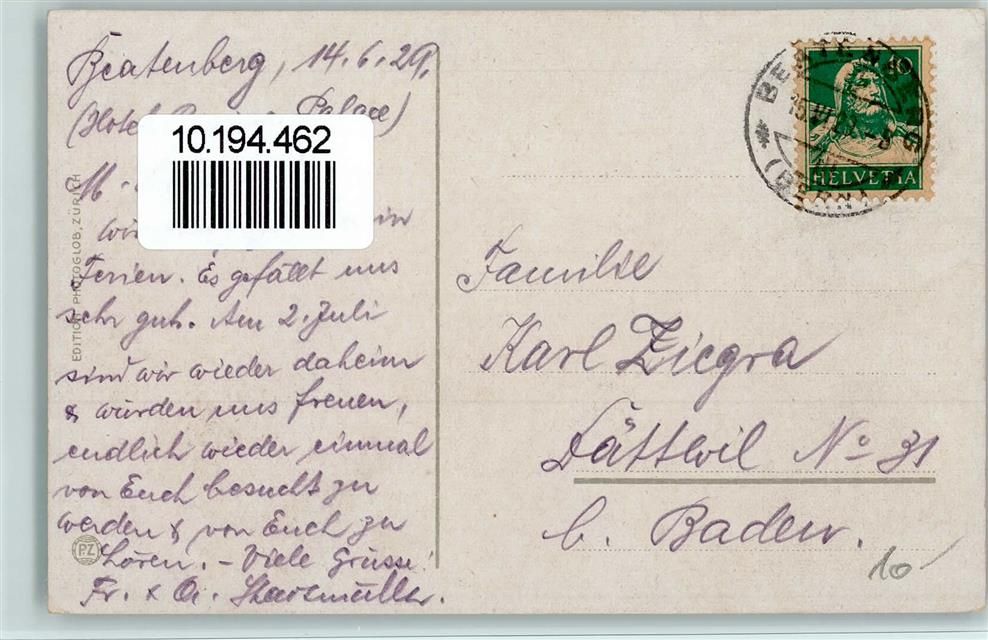 Beatenberg, 14.6.29.
(Hotel Palace)
10.194.462
M.
wir
Ferien. Es gefällt uns
sehr gut. Am 2. Juli
sind wir wieder daheim
& würden uns freuen,
endlich wieder einmal
von Euch besucht zu
werden & von Euch zu
hören. – Viele Grüsse!
Fr. & A.
EDITION PHOTOGLOB, ZÜRICH
PZ
BEATENBERG
(BERN)
10
HELVETIA
Familie
Karl Ziegra
Dättwil No 31
b. Baden.
10